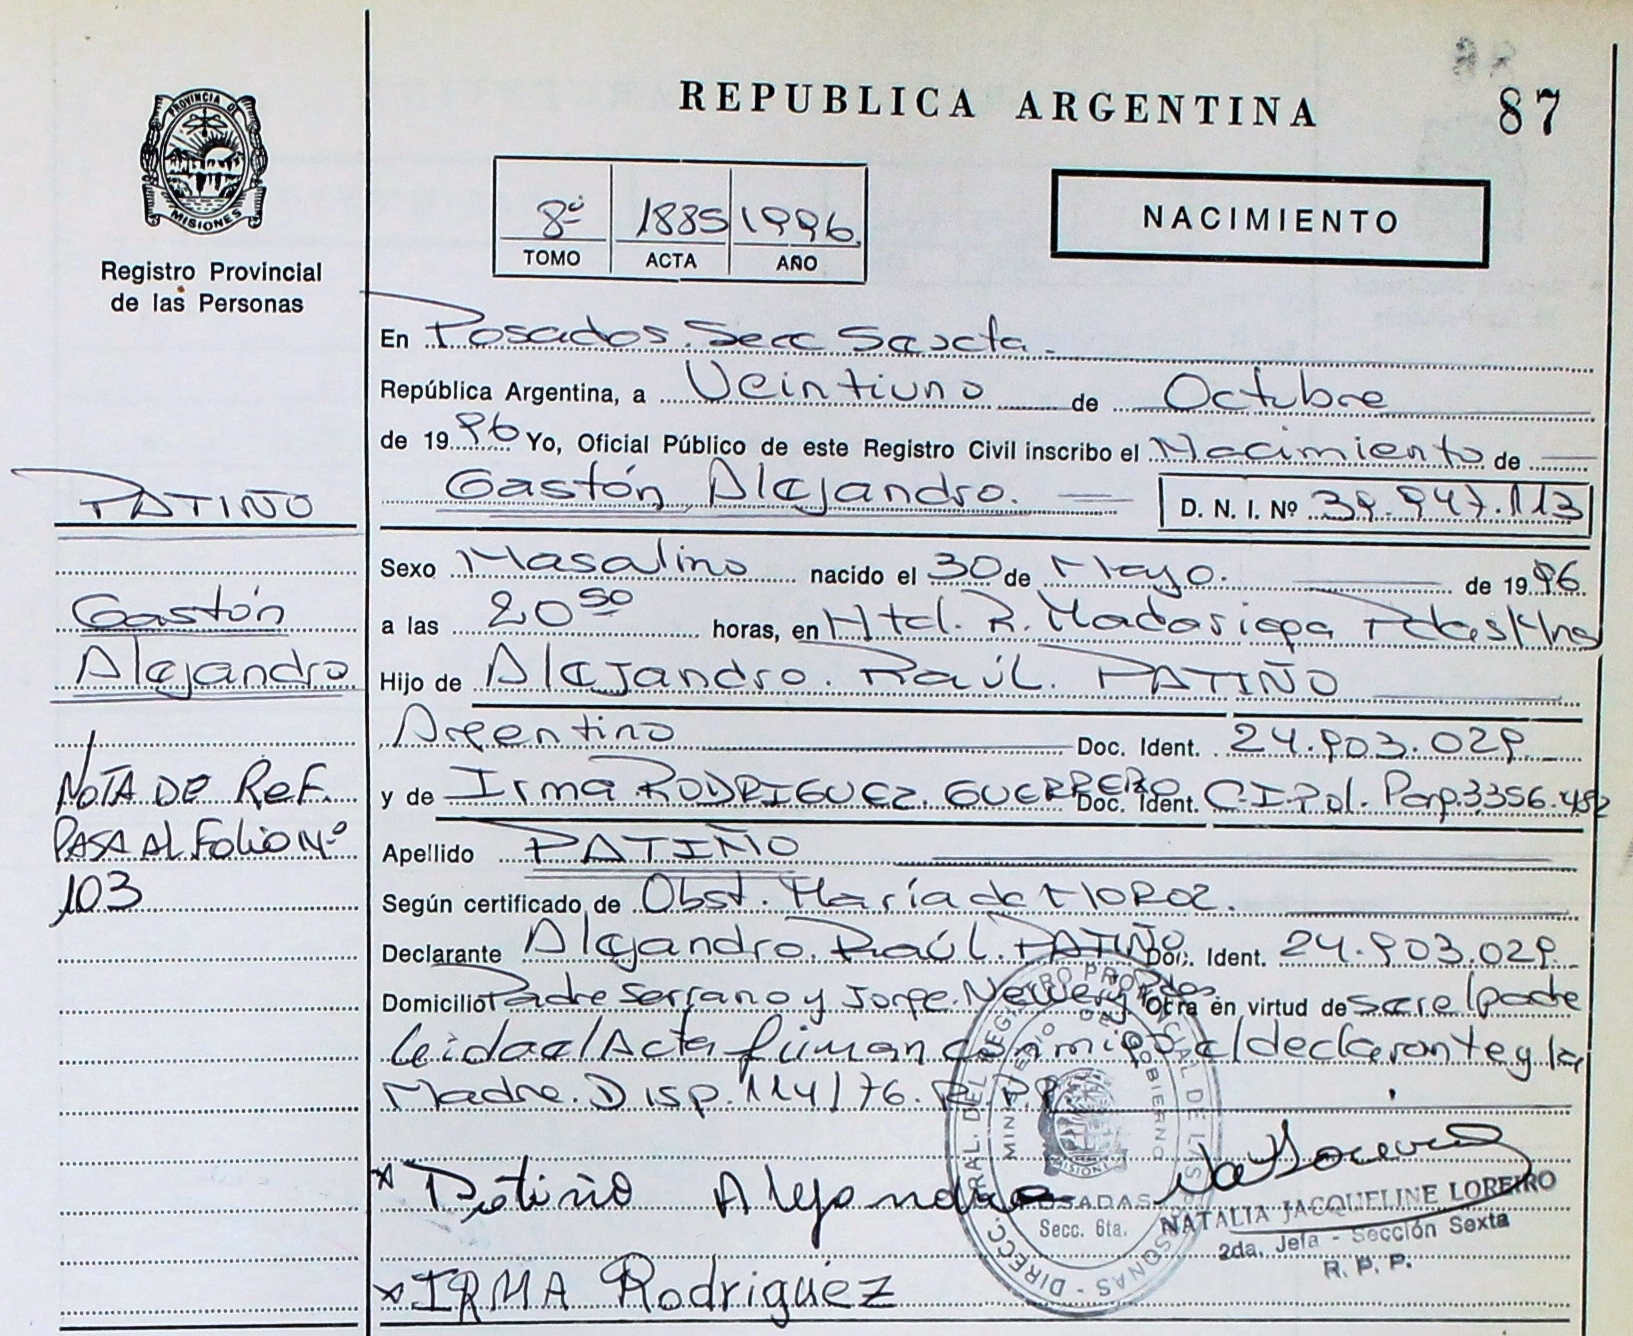 REPUBLICA ARGENTINA 87
PROVINCIA DE
MISIONES
Registro Provincial
de las Personas
8º 1885 1996
TOMO ACTA AÑO
NACIMIENTO
En Posadas. Secc Sexta.
República Argentina, a Veintiuno de Octubre
de 1996 Yo, Oficial Público de este Registro Civil inscribo el Nacimiento de
Gastón Alejandro. D. N. I. Nº 39.947.113
Sexo Masculino nacido el 30 de Mayo. de 1996
a las 20 50 horas, en Htal. R. Madariaga Pdas/Mnes
Hijo de Alejandro. Raúl. PATIÑO
Argentino Doc. Ident. 24.903.029
y de Irma RODRIGUEZ. GUERRERO Doc. Ident. C.I.Pol. Parp.3356.482
Apellido PATIÑO
Según certificado de Obst. María de
Declarante Alejandro. Raúl. PATIÑO Doc. Ident. 24.903.029
Domicilio Padre Serrano y Jorge. Newery Pdas Obra en virtud de ser el padre
leida el Acta firman conmigo el declarante y la
Madre. Disp. 114/76. R.P.P.
PATIÑO
Gastón
Alejandro
NOTA DE Ref.
PASA AL Folio Nº
103
Patiño Alejandro
IRMA Rodriguez
DIRECC. GRAL. DEL REGISTRO PROVINCIAL DE LAS PERSONAS
MINISTERIO DE GOBIERNO
MISIONES
POSADAS
Secc. 6ta.
NATALIA JACQUELINE LOREIRO
2da. Jefa - Sección Sexta
R. P. P.